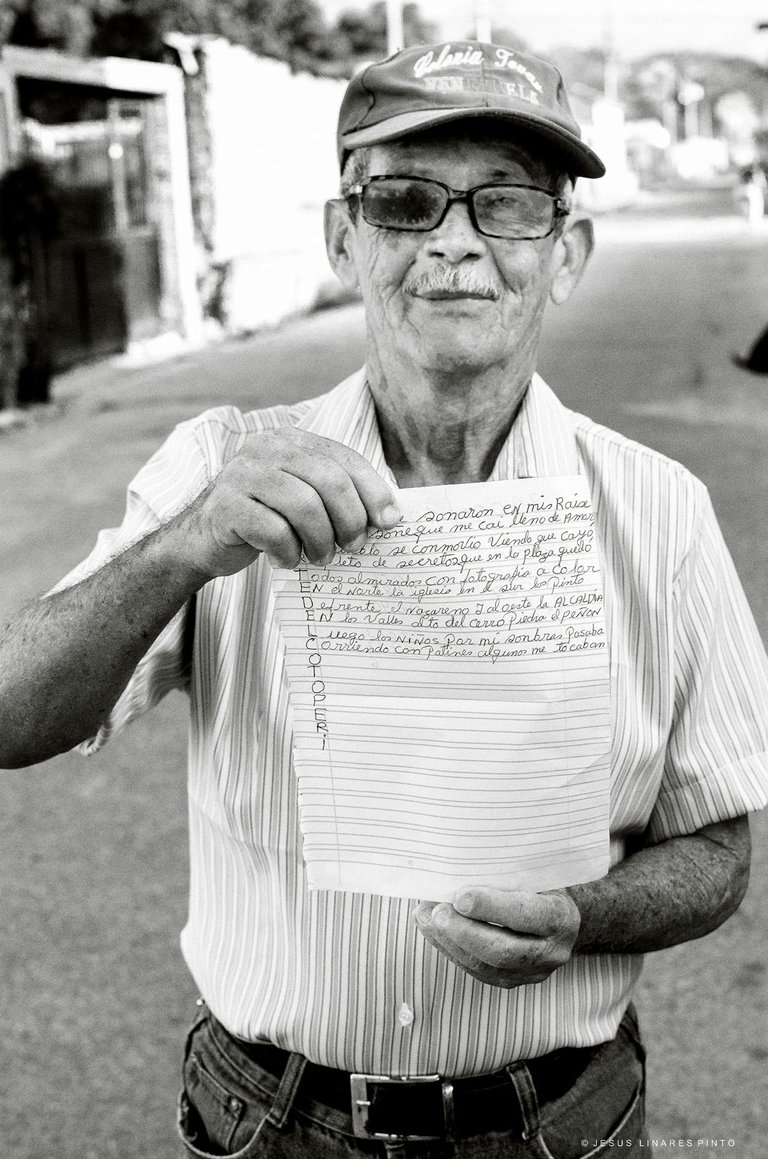 Colonia Tovar
VENEZUELA
sonaron en mis Raise
soñe que me cai lleno de Amor
se conmovio Viendo que cayo
pleto de secretos que en la plaza quedo
odos almirados con fotografia a color
EN el Norte la iglesia en el sur los pinto
efrente el Nazareno I al oeste la ALCALDIA
EN los Valles alto del cerro piedra el peñon
uego los NIÑOS Por mi sombras Pasaba
orriendo con Patines algunos me tocaban
T
E
D
E
L
C
O
T
O
P
E
R
I
© JESUS LINARES PINTO